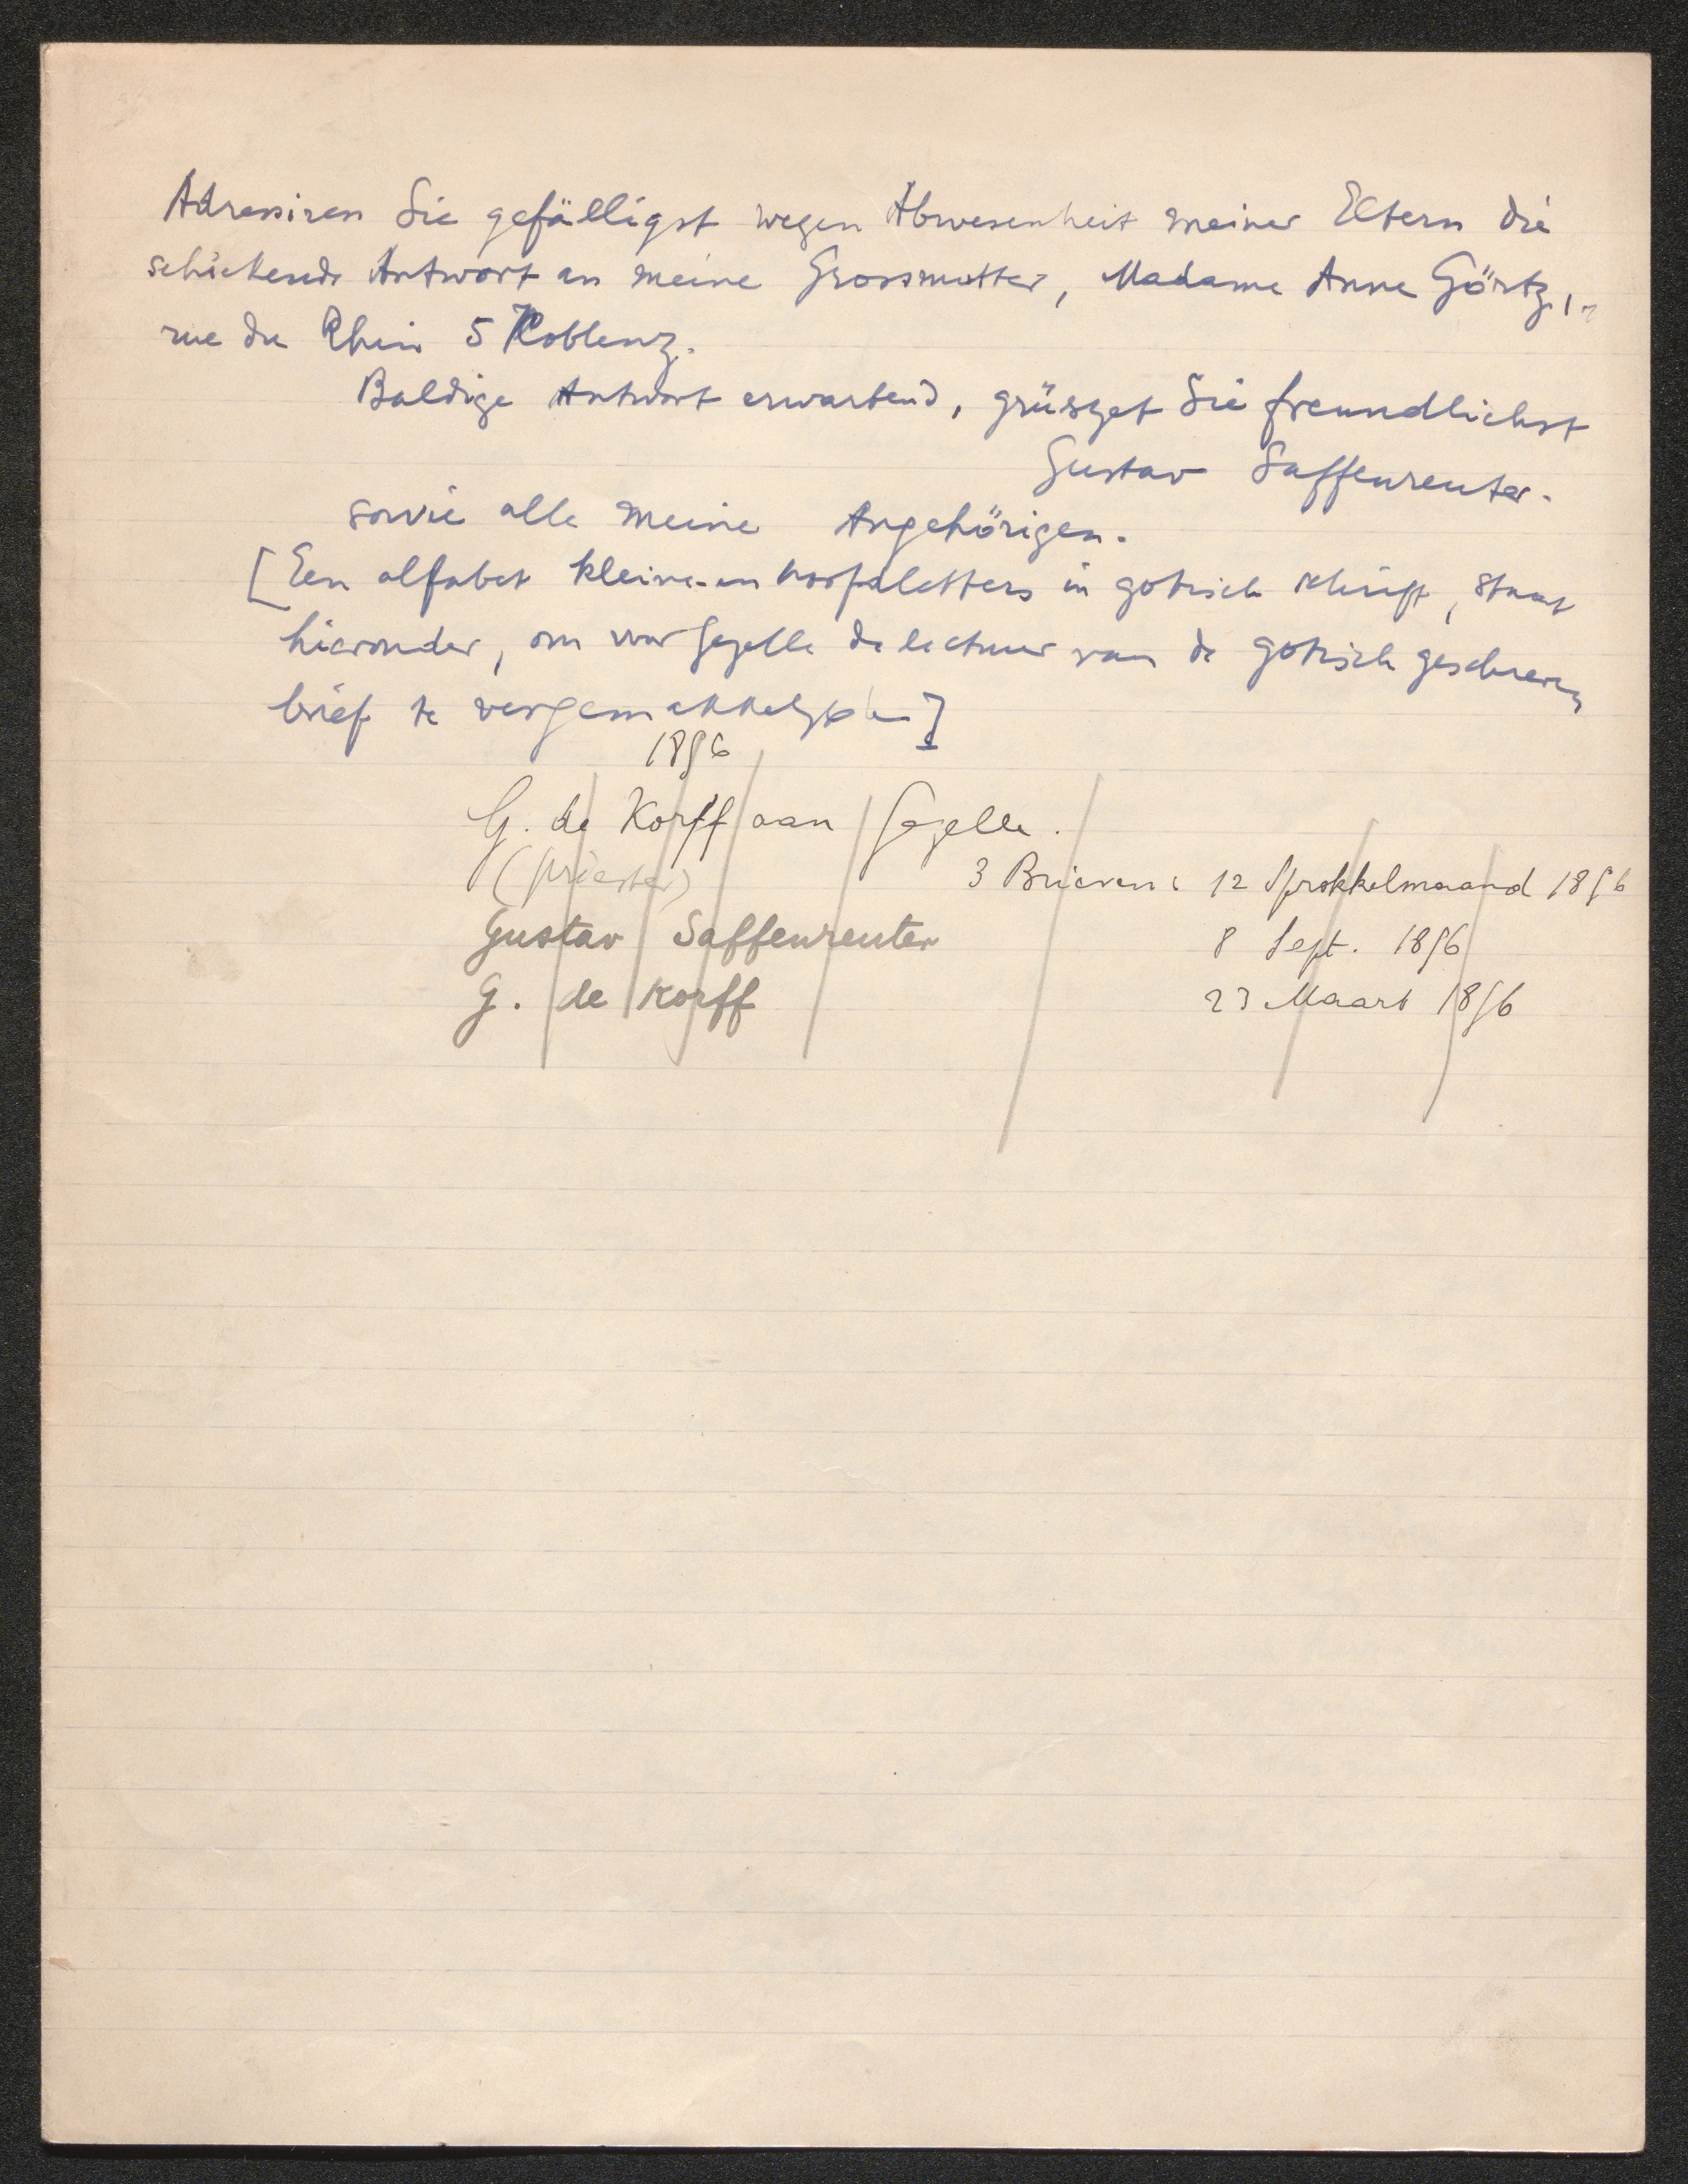 Adressiren Sie gefälligst wegen Abwesenheit meiner Eltern die
schickende Antwort an meine Grossmutter, Madame Anne Görtz,
rue du Rhin 5 Koblenz.
Baldige Antwort erwartend, grüszet Sie freundlichst
Gustav Saffenreuter.
sowie alle meine Angehörigen.
[Een alfabet kleine en hoofdletters in gotisch schrift, staat
hieronder, om voor Gezelle de lectuur van de gotisch geschreven
brief te vergemakkelijken]
1896
G. de Korff aan Gezelle.
(priester)
3 Brieven: 12 Sprokkelmaand 1896
Gustav Saffenreuter
8 Sept. 1896
G. de Korff
23 Maart 1896